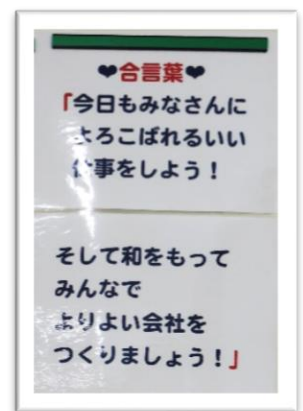 ❤合言葉❤
「今日もみなさんに
よろこばれるいい
仕事をしよう！
そして和をもって
みんなで
よりよい会社を
つくりましょう！」